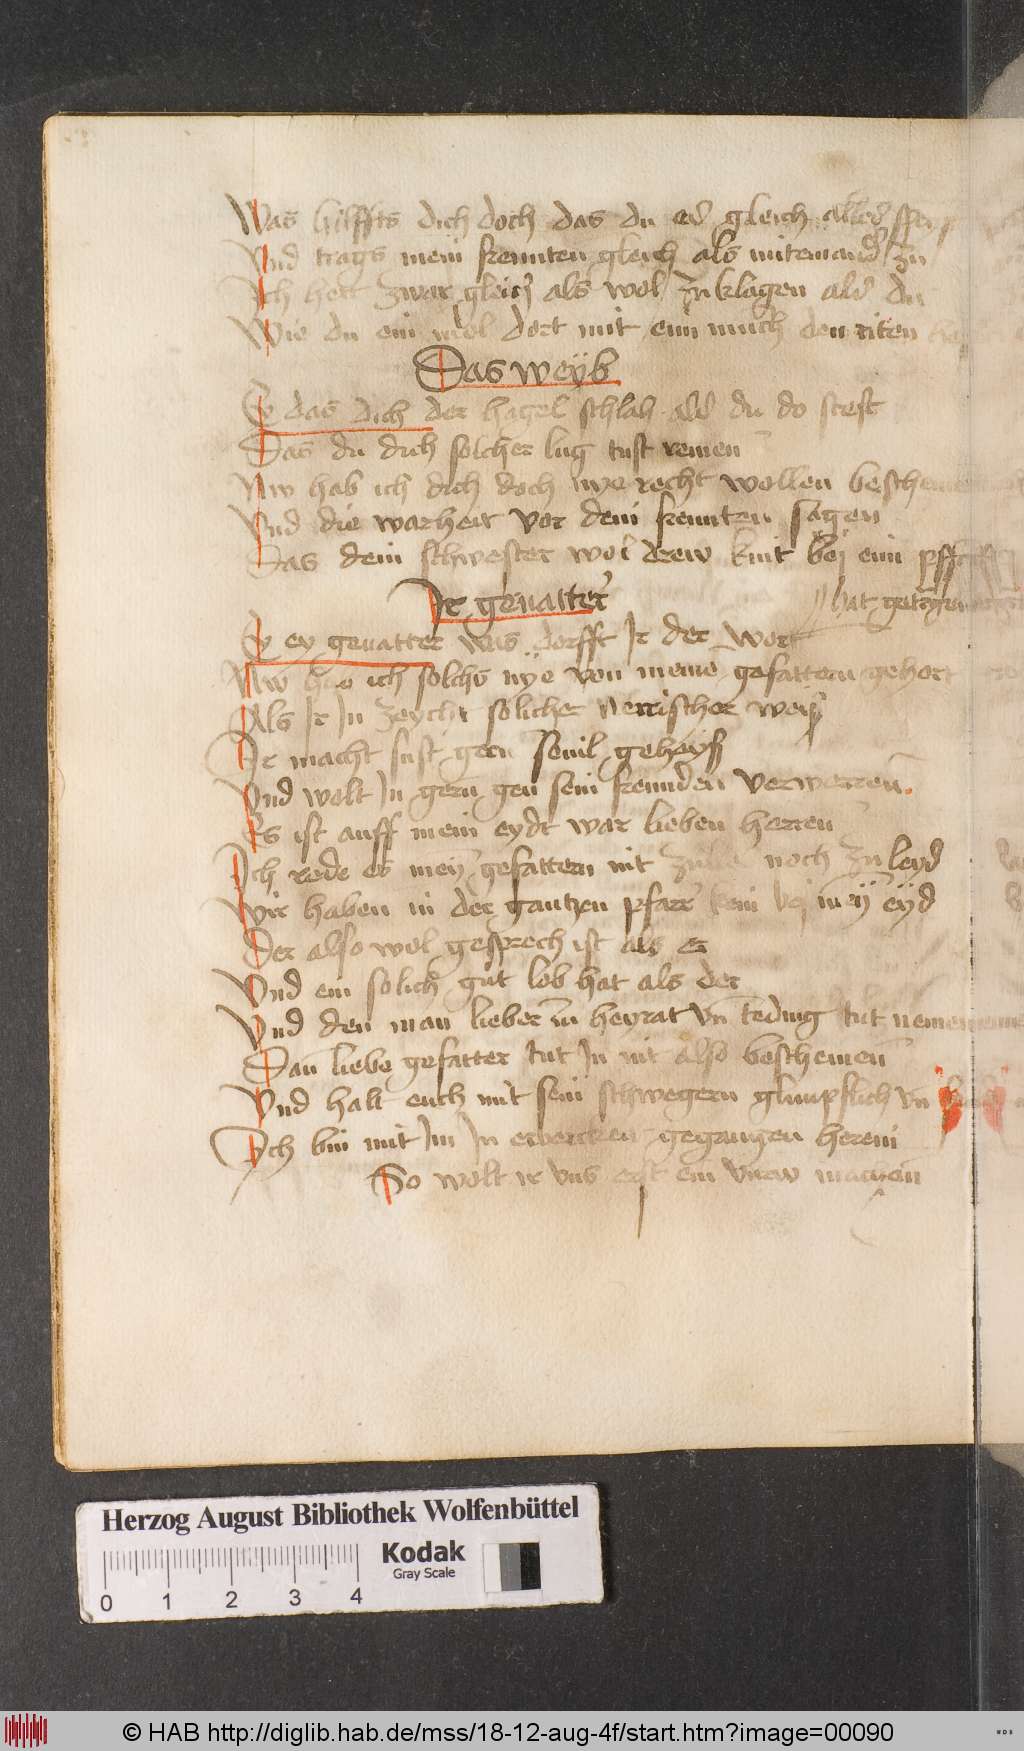 Was hilffts dich doch das du es gleich alles
Vnd trags mein frewnten gleich als mitenand zu
Ich hett zwar gleich als wol zu klagen als du
Wie du ein mol dort mit eim munch den riten
Das weyb
Ey das dich der hagel schlah als du do stest
Das du dich solcher lug tust remen
Nw hab ich dich doch nye recht wollen
Vnd die warheit vor dein frewnten sagen
Das dein schwester wol drew kint bej eim
hat getragen
Ir geuatter
Ey ey geuatter was dorfft Ir der wort
Nw hab ich solchs nye von meinē gefattern gehort
Als Ir In zeycht solicher nerrischer weiß
Ir macht sust gern seuil geheyß
Vnd wolt In gern gen sein freunden verwerren
Es ist auff mein eydt war lieben herren
Ich rede es meī gefattern nit zu lieb noch zu leyd
Wir haben in der gantzen pfarr kein bej meȳ eyd
Der also wol gesprech ist als er
Vnd ein solich gut lob hat als der
Vnd den man lieber in heyrat vn teding tut nemen
Dan liebe gefatter tut In nit also beschemen
Vnd halt euch mit sein schwegern glimpflich vn
Ich bin mit Im In gegangen herein
So wolt ir vns erst ein vnrw machen
Herzog August Bibliothek Wolfenbüttel
0 1 2 3 4
Kodak
Gray Scale
© HAB http://diglib.hab.de/mss/18-12-aug-4f/start.htm?image=00090